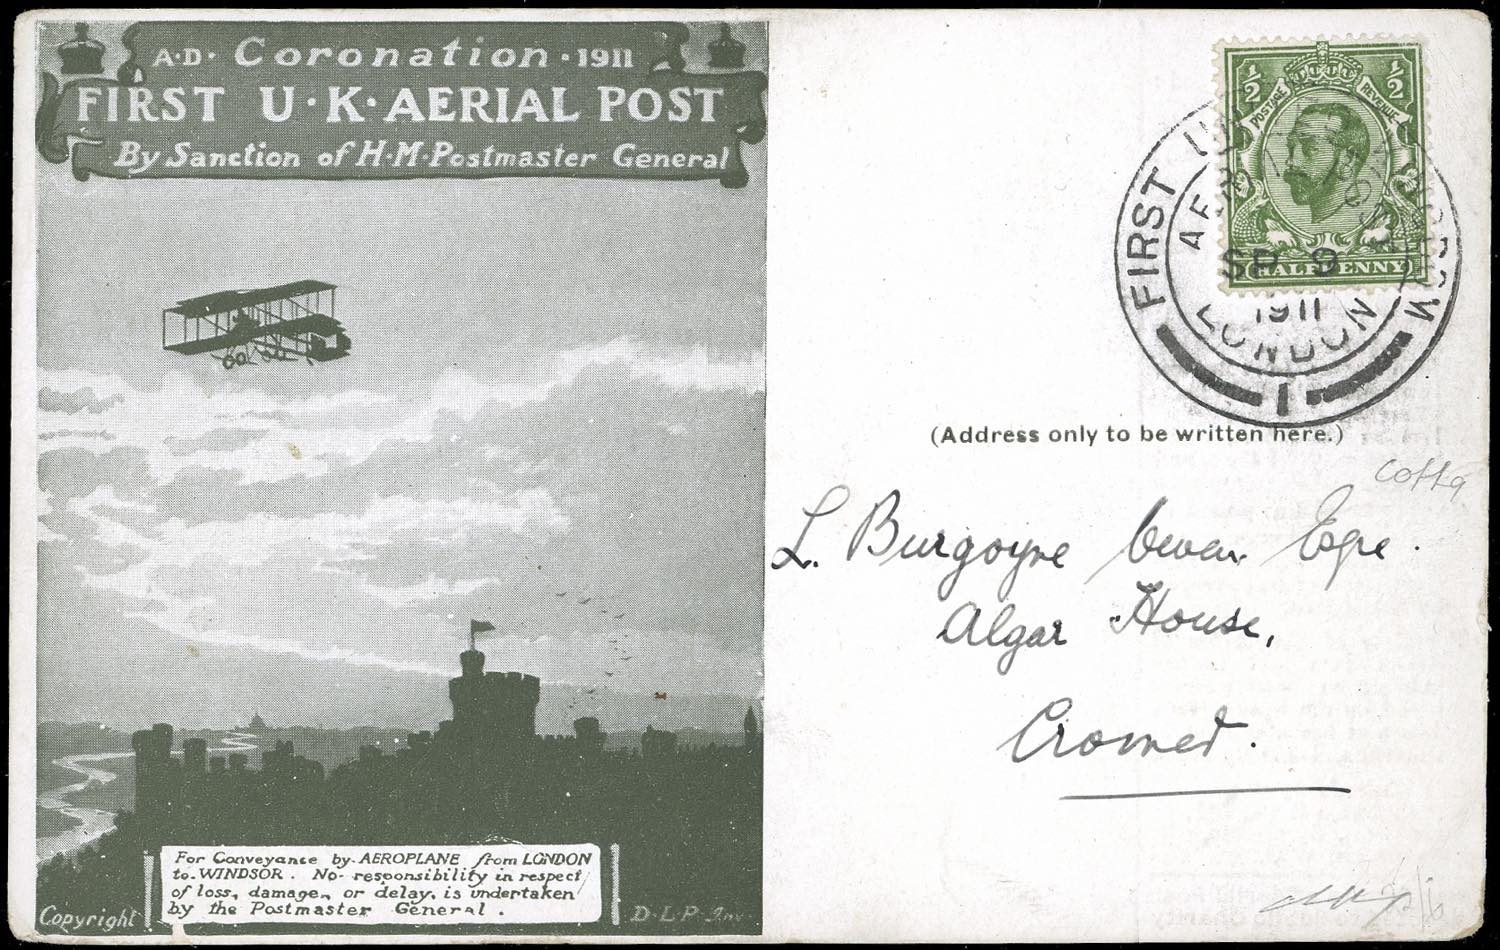 A·D· Coronation · 1911
FIRST U·K·AERIAL POST
By Sanction of H·M·Postmaster General
For Conveyance by AEROPLANE from LONDON
to WINDSOR. No responsibility in respect
of loss, damage, or delay, is undertaken
by the Postmaster General.
Copyright
D·L·P·Inv
½ ½
POSTAGE REVENUE
HALFPENNY
FIRST
LONDON
SP 9
1911
1
(Address only to be written here.)
L. Burgoyne Esqre.
Algar House,
Cromer.